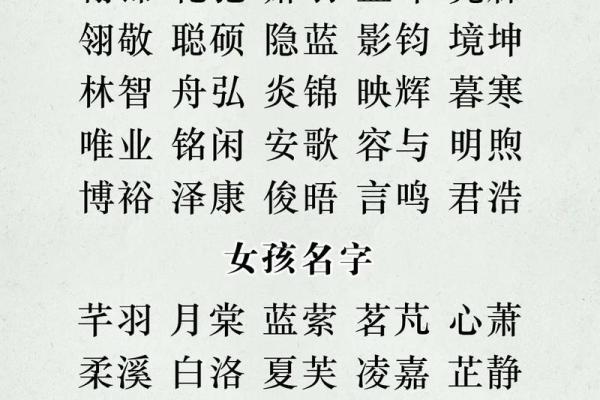 翎敬 聪硕 隐蓝 影钧 境坤
林智 舟弘 炎锦 映辉 暮寒
唯业 铭闲 安歌 容与 明煦
博裕 泽康 俊晤 言鸣 君浩
女孩名字
芊羽 月棠 蓝萦 茗芃 心萧
柔溪 白洛 夏芙 凌嘉 芷静